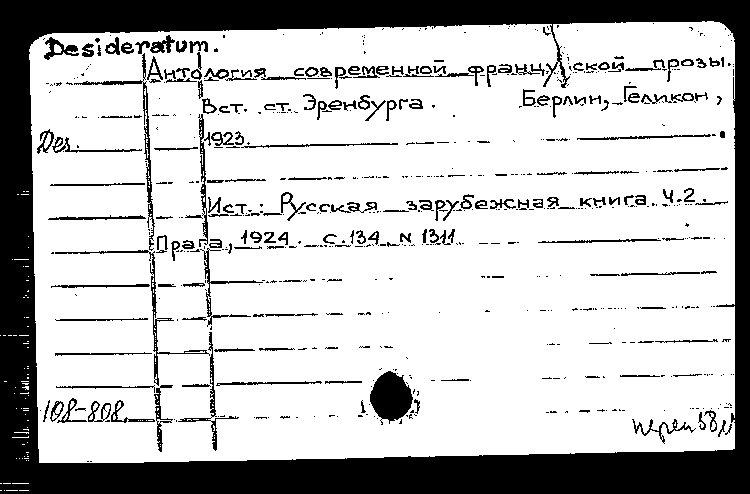 Desideratum.
Антология современной французской прозы.
Вст. ст. Эренбурга. Берлин, Геликон,
Des. 1923.
Ист.: Русская зарубежная книга. Ч.2.
Прага, 1924. с.134, N 1311
108-808.